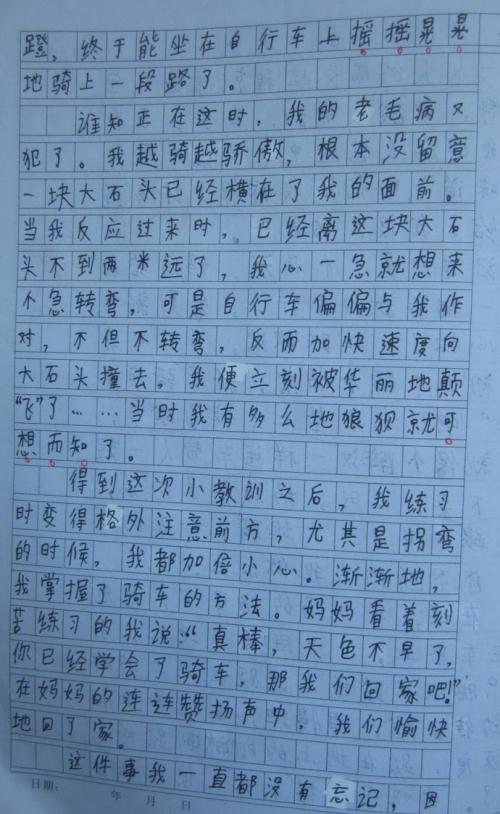 蹬，终于能坐在自行车上摇摇晃晃
地骑上一段路了。
谁知正在这时，我的老毛病又
犯了。我越骑越骄傲，根本没留意
一块大石头已经横在了我的面前。
当我反应过来时，已经离这块大石
头不到两米远了，我心一急就想来
个急转弯，可是自行车偏偏与我作
对，不但不转弯，反而加快速度向
大石头撞去，我便立刻被华丽地颠
“飞”了……当时我有多么地狼狈就可
想而知了。
得到这次小教训之后，我练习
时变得格外注意前方，尤其是拐弯
的时候，我都加倍小心。渐渐地，
我掌握了骑车的方法。妈妈看着刻
苦练习的我说：“真棒，天色不早了，
你已经学会了骑车，那我们回家吧！”
在妈妈的连连赞扬声中，我们愉快
地回了家。
这件事我一直都没有忘记，因
日期： 年 月 日